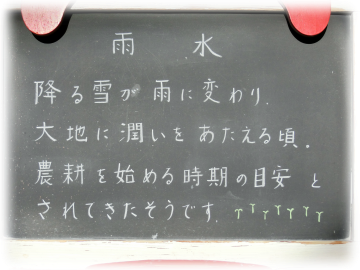 雨水
降る雪が雨に変わり.
大地に潤いをあたえる頃.
農耕を始める時期の目安と
されてきたそうです.